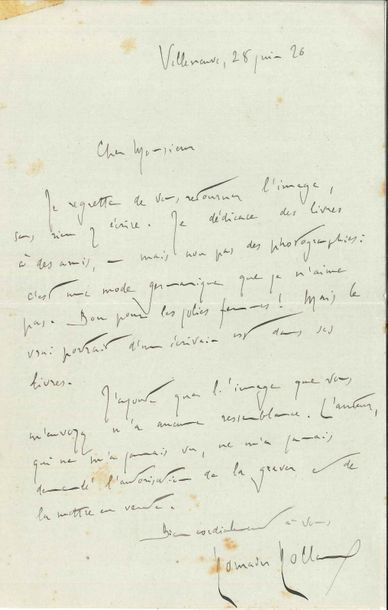 Villeneuve, 28 juin 26
Cher Monsieur
Je regrette de vous retourner l'image,
sans rien y écrire. Je dédicace des livres
à des amis, — mais non pas des photographies :
c'est une mode germanique que je n'aime
pas. Bon pour les jolies femmes ! Mais le
vrai portrait d'un écrivain est dans ses
livres.
J'ajoute que l'image que vous
m'envoyez n'a aucune ressemblance. L'auteur,
qui ne m'a jamais vu, ne m'a jamais
demandé l'autorisation de la graver et de
la mettre en vente.
Bien cordialement à vous
Romain Rolland